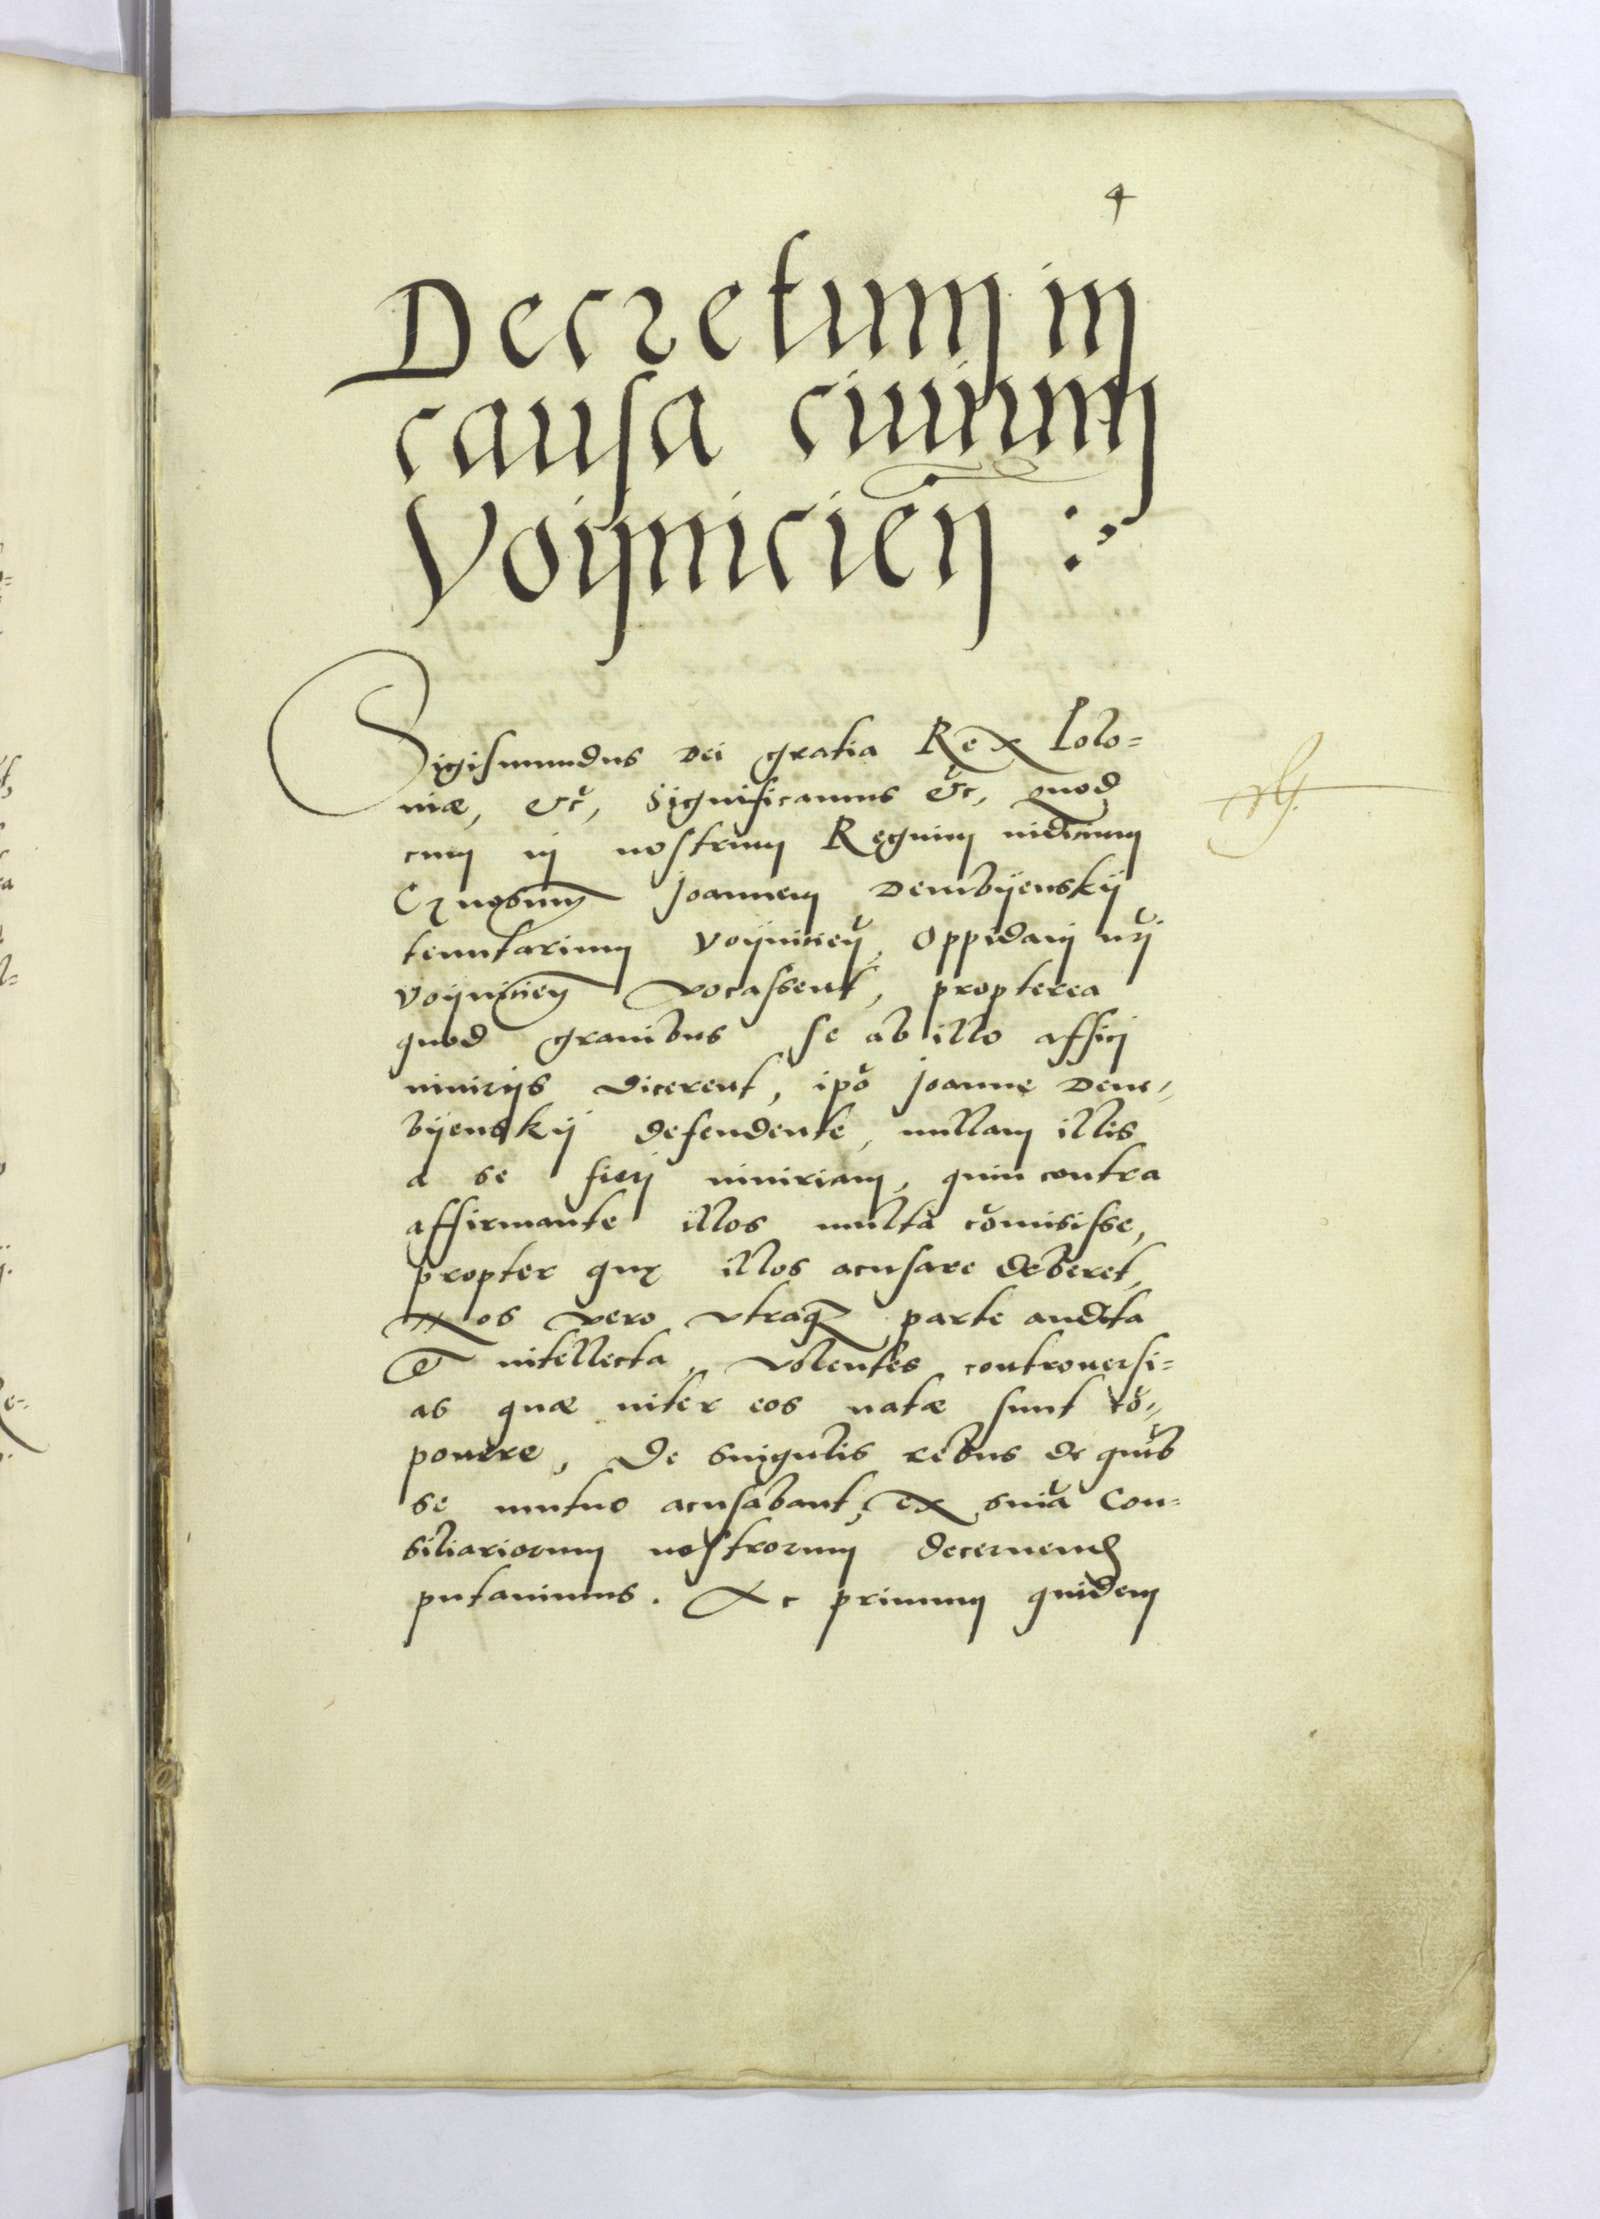 4
Decretum in
causa ciuium
Voijnicien̄ :
Sigismundus Dei gratia Rex Polo=
niæ, etc̃, Significamus etc̃, quod
cum in nostrum Regium iudicium
Gnosum Joannem Dembijenskij
tenutarium Voijnicien̄, Oppidani nr̃i
Voijnicien̄ vocassent, propterea
quod grauibus se ab illo affici
iniurijs dicerent, ipõ Joanne Dem=
bijenskij defendente, nullam illis
a se fieri iniuriam, quin contra
affirmante illos multa com̃isisse,
propter quę illos acusare deberet,
Nos vero vtraq; parte audita
et intellecta, volentes controuersi=
as quæ inter eos natæ sunt cõ=
ponere, De singulis rebus de quib
se mutuo acusabant, ex snĩa Con=
siliariorum nostrorum decernend
putauimus. Ac primum quidem